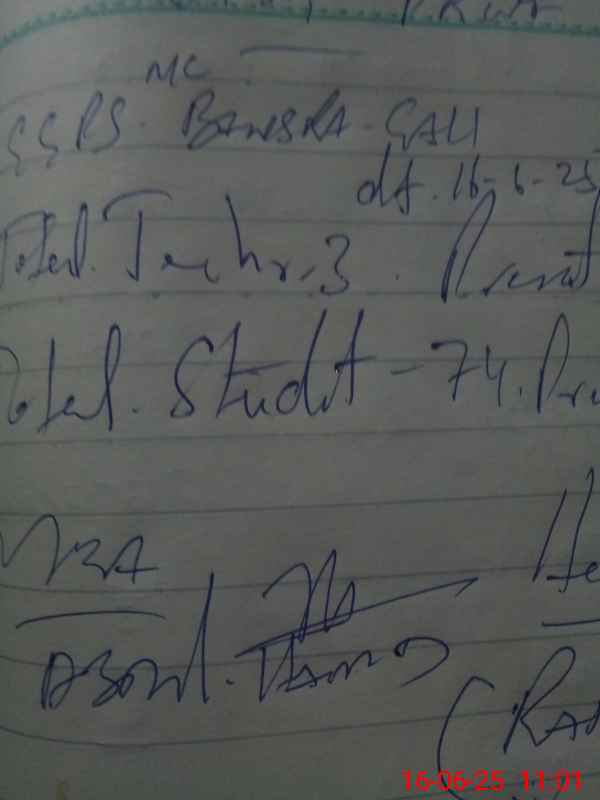 MC
GGPS. BANSRA-GALI
dt. 16-6-25
Total. Techr. 3. Presnt
Total. Studt - 74. Pre
ABDUL. HAMID
(RA
16-06-25 11:01